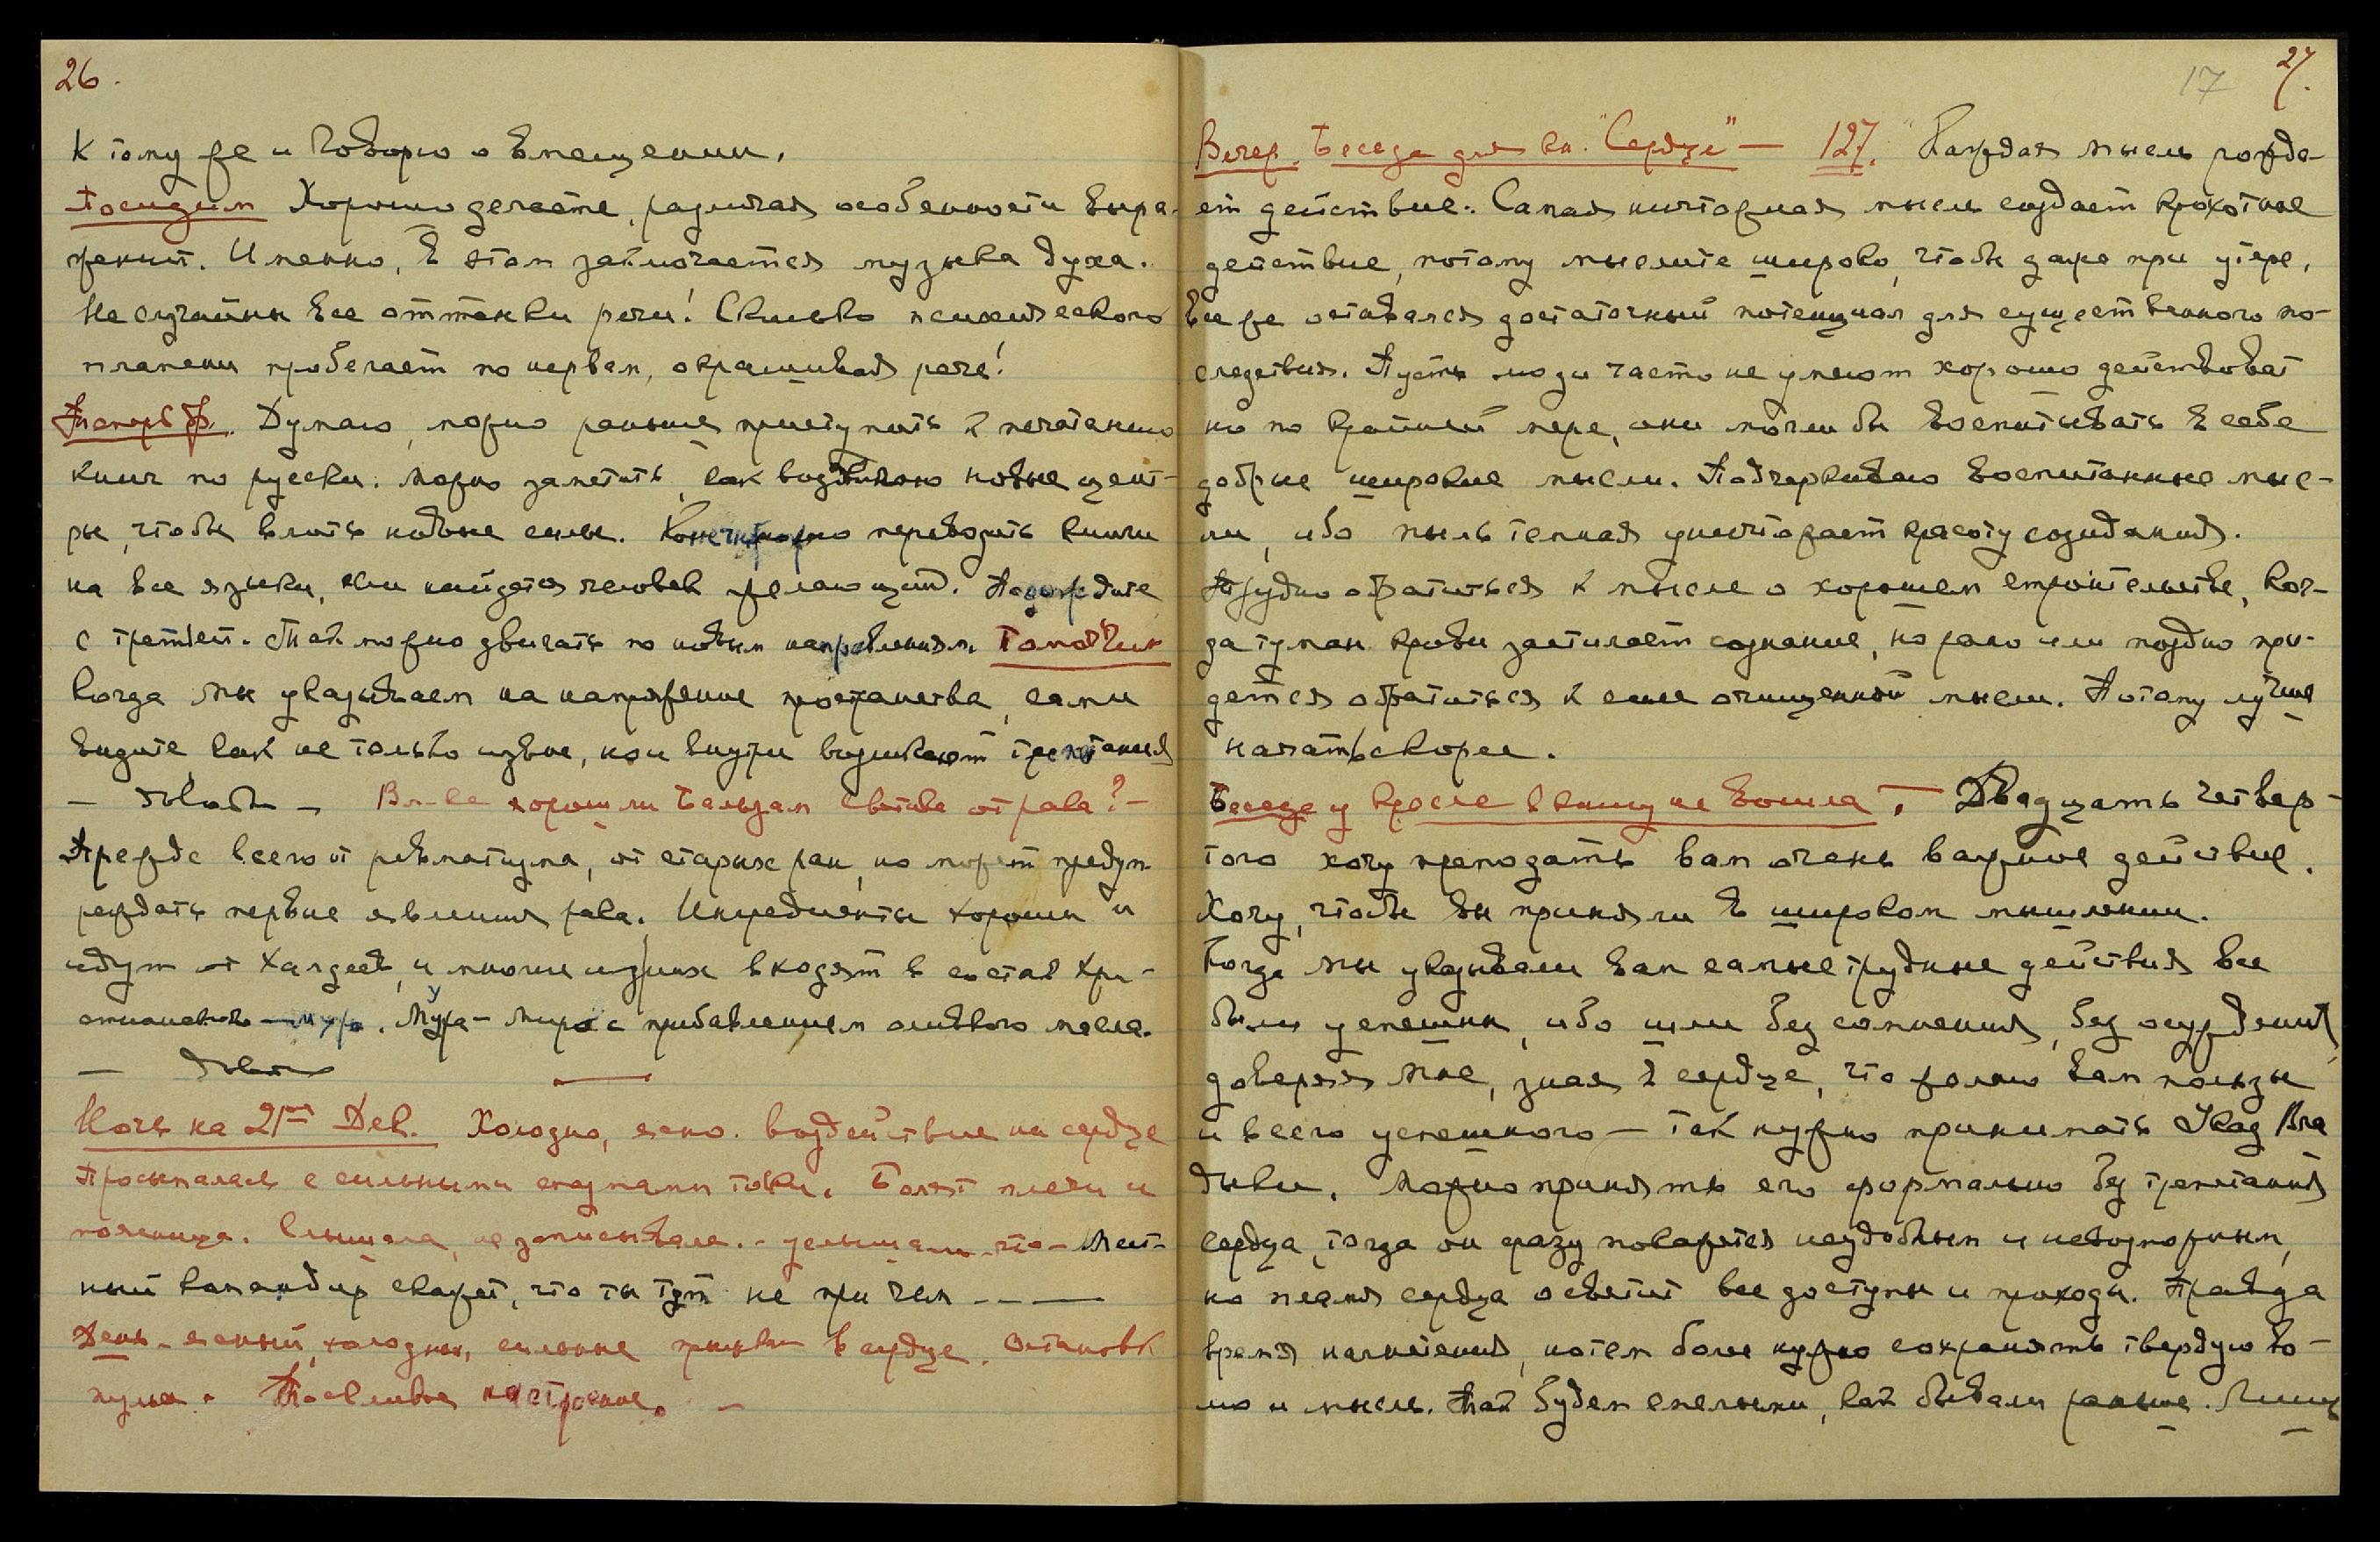 26.
К тому же и Говорю о вмещении.
Посидим Хорошо делаете, различая особенности выра-
жений. Именно, в этом заключается музыка духа.
Не случайны все оттенки речи! Сколько психического
пламени пробегает по нервам, окрашивая речь!
Думаю, можно раньше приступить к печатанию
книг по русски. Можно заметить, как воздвигаю новые цент-
ры, чтобы влить новые силы. Конечно можно переводить книги
на все языки, если найдется человек желающий. Подождите
с третьей. Так можно двигать по новым направлениям.
Когда Мы указываем на напряжение пространства, сами
видите, как не только извне, но и внутри возникают трепетания
— Вл-ка хорош ли Бальзам от рака? —
Прежде всего от ревматизма, от старых ран, но может предуп-
реждать первые явления рака. Ингредиенты хороши и
идут от Халдеев, и многие из них входят в состав Хри-
мура. Мура - Миро с прибавлением оливкого масла.
—
Ночь на 21ое Дек. Холодно, ясно. Воздействие на сердце
Просыпалась с сильными спазмами тоски. Болят плечи и
поясница. Слышала, не записывала. - услышали что - Мест-
ный командир скажет, что ты тут не при чем - - —
День - ясный, холодный, сильные приливы в сердце. Остановк
пульса. Тоскливое настроение. -
17 27.
Вечер. Беседа для кн. "Сердце" — 127. Каждая мысль рожда-
ет действие. Самая ничтожная мысль создает крохотное
действие, потому мыслите широко, чтобы даже при утере,
все же оставался достаточный потенциал для существенного по-
следствия. Пусть люди часто не умеют хорошо действоват
но по крайней мере, они могли бы воспитывать в себе
добрые широкие мысли. Подчеркиваю воспитанные мыс-
ли, ибо пыль темная уничтожает красоту созидания.
Трудно обратиться к мысле о хорошем строительстве, ког-
да туман крови застилает сознание, но рано или поздно при-
дется обратиться к силе очищенной мысли. Потому лучше
начать скорее.
Беседа у кресле в книгу не вошла. — Двадцать четвер-
того хочу преподать вам очень важное действие.
Хочу, чтобы вы приняли в широком мышлении.
Когда Мы указывали вам самые трудные действия все
были успешны, ибо шли без сомнения, без осуждений
доверяя Мне, зная в сердце, что желаю вам пользы
и всего успешного — так нужно принимать Указ Вла
дыки. Можно принять его формально без трепетаний
сердца, тогда он сразу покажется неудобным и невозможным,
но пламя сердца осветит все доступы и проходы. Правда
время нагнетений, но тем более нужно сохранять твердую во-
лю и мысль. Так будем смелыми, как бывали раньше. Лишь